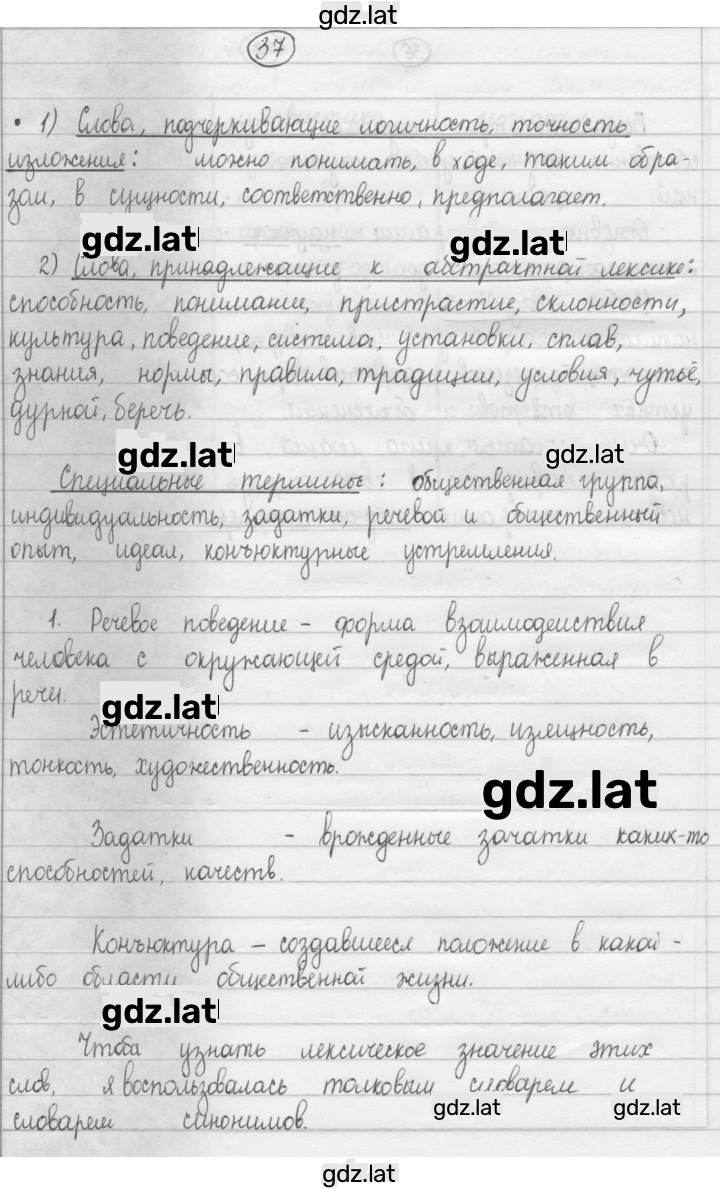 gdz.lat
37
• 1) Слова, подчеркивающие логичность, точность
изложения: можно понимать, в ходе, таким обра-
зом, в сущности, соответственно, предполагает.
gdz.lat gdz.lat
2) Слова, принадлежащие к абстрактной лексике:
способность, понимание, пристрастие, склонности,
культура, поведение, система, установки, сплав,
знания, нормы, правила, традиции, условия, чутьё,
дурной, беречь.
gdz.lat gdz.lat
Специальные термины: общественная группа,
индивидуальность, задатки, речевой и общественный
опыт, идеал, конъюктурные устремления.
1. Речевое поведение – форма взаимодействия
человека с окружающей средой, выраженная в
речи.
gdz.lat
Эстетичность – изысканность, изящность,
тонкость, художественность.
gdz.lat
Задатки – врожденные зачатки каких-то
способностей, качеств.
Конъюктура – создавшееся положение в какой-
либо области общественной жизни.
gdz.lat
Чтобы узнать лексическое значение этих
слов, я воспользовалась толковым словарем и
словарем синонимов.
gdz.lat gdz.lat
gdz.lat